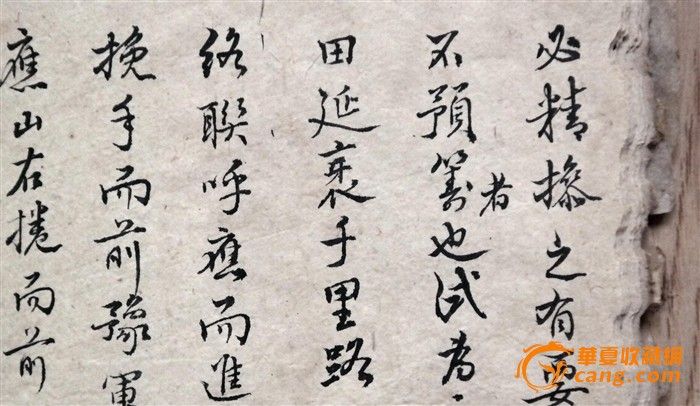 必精操之有要
不預籌者也試為
田延袤千里路
络聯呼應而進
挽手而前豫軍
應山右捲而前
華夏收藏網
cang.com